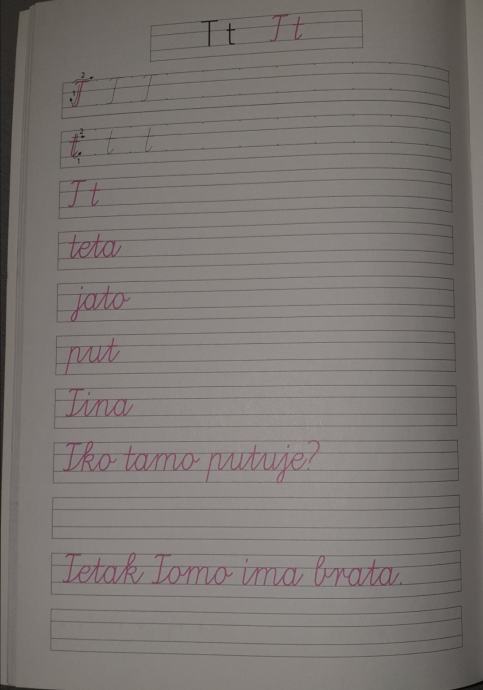 Tt Tt
2 1 T T T
2 1 t t t
T t
teta
jato
put
Tina
Tko tamo putuje?
Tetak Tomo ima brata.